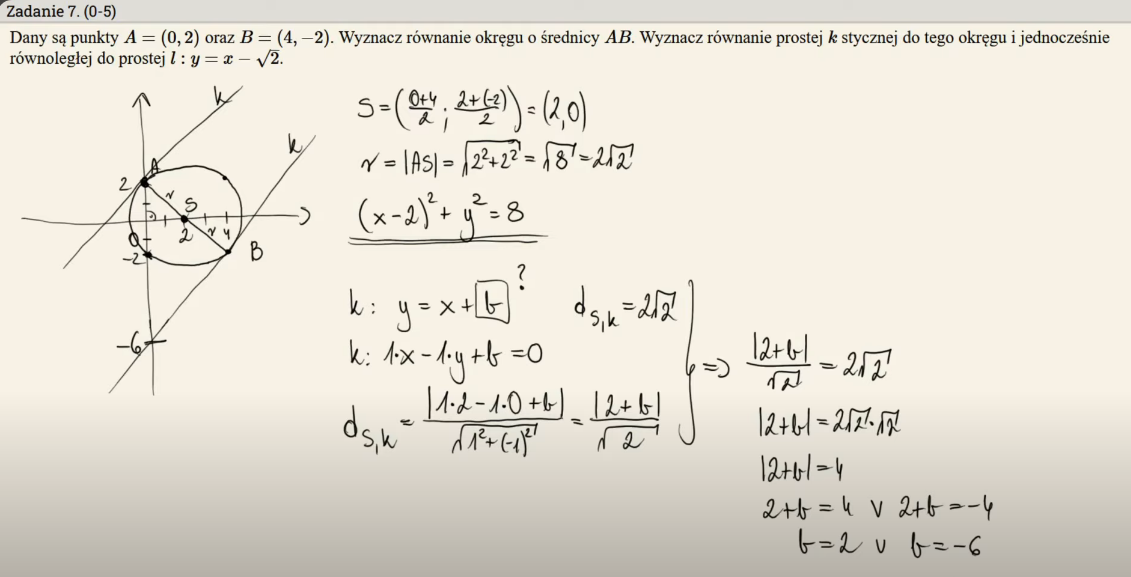 Zadanie 7. (0-5)
Dany są punkty A = (0, 2) oraz B = (4, −2). Wyznacz równanie okręgu o średnicy AB. Wyznacz równanie prostej k stycznej do tego okręgu i jednocześnie
równoległej do prostej l : y = x − √2.
k
k
A
2
r
S
0
2
r
4
-2
B
-6
S = ((0+4)/2 ; (2+(-2))/2) = (2,0)
r = |AS| = √(2²+2²) = √8 = 2√2
(x-2)² + y² = 8
k: y = x + b ?
d_{S,k} = 2√2
k: 1·x - 1·y + b = 0
d_{S,k} = |1·2 - 1·0 + b| / √(1²+(-1)²) = |2+b| / √2
=> |2+b| / √2 = 2√2
|2+b| = 2√2·√2
|2+b| = 4
2+b = 4 ∨ 2+b = -4
b = 2 ∨ b = -6